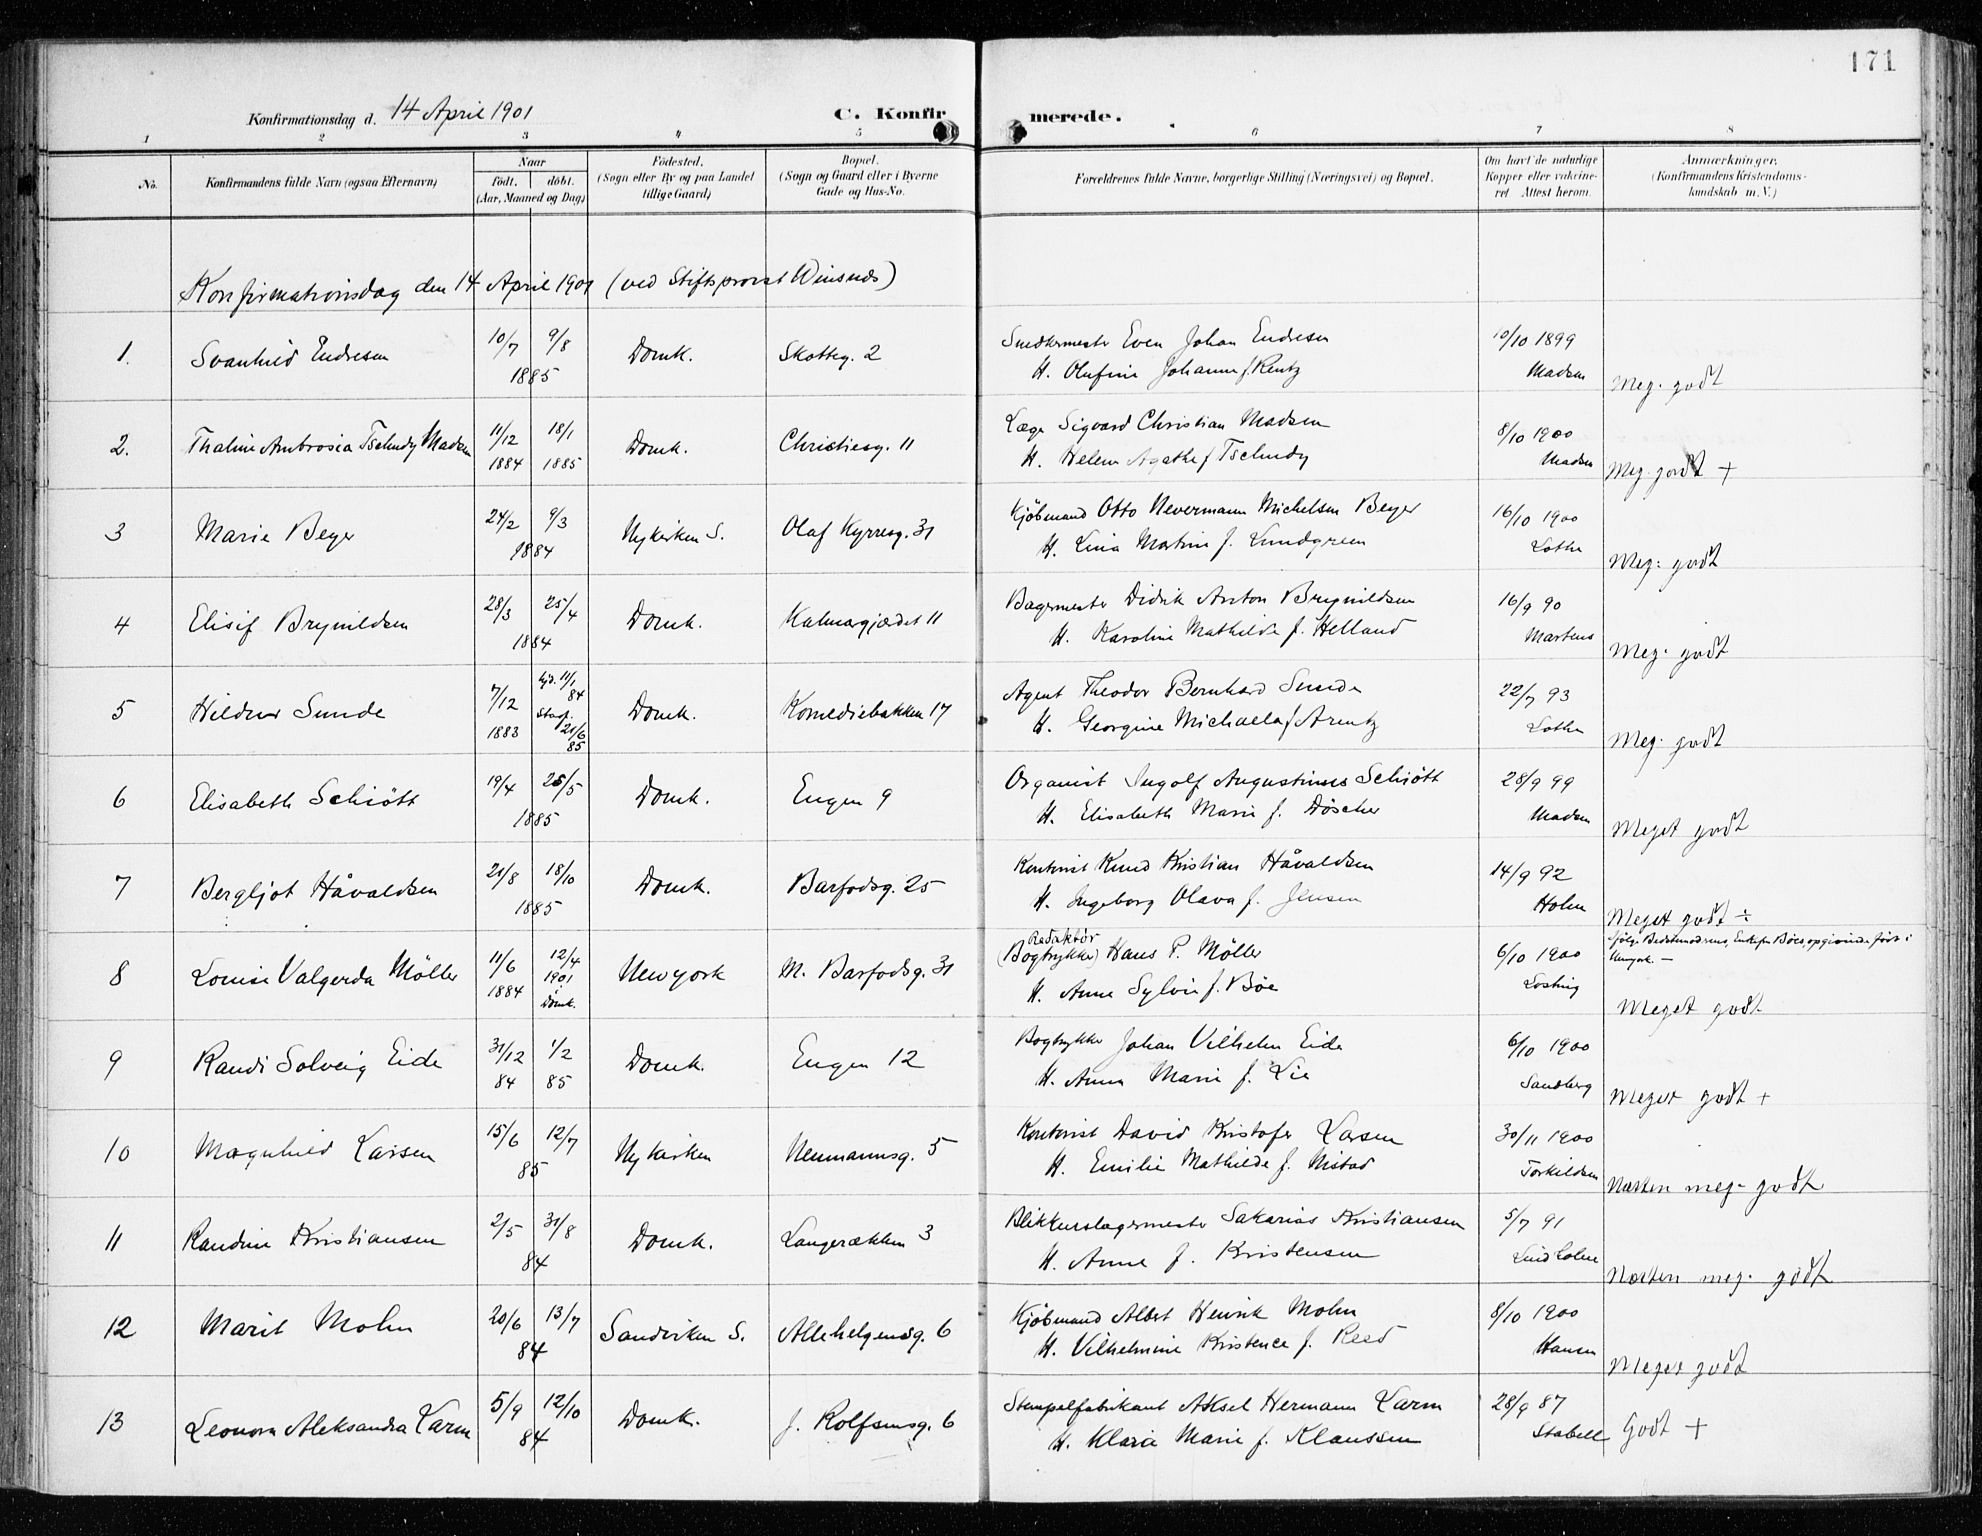 171
Konfirmationsdag d. 14 April 1901 C. Konfirmerede.
1 2 3 4 5 6 7 8
No. Konfirmandens fulde Navn (ogsaa Efternavn) Naar født. døbt. (Aar, Maaned og Dag) Fødested. (Sogn eller By og paa Landet tillige Gaard) Bopæl. (Sogn og Gaard eller i Byerne Gade og Hus-No. Forældrenes fulde Navne, borgerlige Stilling (Næringsvei) og Bopæl. Om havt de naturlige Kopper eller vakcineret Attest herom. Anmærkninger. (Konfirmandens Kristendomskundskab m. V.)
Konfirmationsdag den 14 April 1901 (ved Stiftsprovst Winsnes)
1. Svanhild Endresen 10/7 9/8 1885 Domk. Skotteg. 2 Snedkermester Even Johan Endresen 10/10 1899
H. Olufine Johanne f. Rentz Madsen Meg. godt
2. Thaline Ambrosia Tschudy Madsen 11/12 1884 18/1 1885 Domk. Christiesg. 11 Læge Sigvard Christian Madsen 8/10 1900
H. Helene Agathe f Tschudy Madsen Meg. godt +
3 Marie Beyer 24/2 9/3 1884 Nykirken S. Olaf Kyrresg. 31 Kjøbmand Otto Nevermann Michelsen Beyer 16/10 1900
H. Lina Martine f. Lundgreen Lothe Meg: godt
4 Elisif Brynildsen 28/3 25/4 1884 Domk. Kalmargjærdet 11 Bagermester Didrik Anton Brynildsen 16/9 90
H. Karoline Mathilde f. Helland Martens Meg. godt
5 Hildur Sunde 7/12 1883 hjd. 11/1 84 Stadf. 21/6 85 Domk. Komediebakken 17 Agent Theodor Bernhard Sunde 22/7 93
H. Georgine Michaela f Arentz Lothe Meg. godt
6 Elisabeth Schiött 19/4 25/5 1885 Domk. Engen 9 Organist Ingolf Augustinus Schiött 28/9 99
H. Elisabeth Marie f. Döscher Madsen Meget godt
7 Bergljot Håvaldsen 21/8 18/10 1885 Domk. Barfodsg. 25 Kontorist Knud Kristian Håvaldsen 14/9 92
H. Ingeborg Olava f. Jensen Holm Meget godt ÷
8 Louise Valgerda Möller 11/6 1884 12/4 1901 Domk. Newyork M. Barfodsg. 31 Redaktör (Bogtrykker) Hans P. Möller 6/10 1900 ifølge Bedstemoderens, Enkefru Böes, opgivende født i Newyork. —
H. Anne Sylvie f. Böe Meget godt
9 Randi Solveig Eide 31/12 84 1/2 85 Domk. Engen 12 Bogtrykker Johan Vilhelm Eide 6/10 1900
H. Anna Marie f. Lie Sandberg Meget godt +
10 Magnhild Larsen 15/6 12/7 85 Nykirken Neumannsg. 5 Kontorist David Kristofer Larsen 30/11 1900
H. Emilie Mathilde f. Mistad Torkildsen Næsten meg. godt
11 Randine Kristiansen 2/5 31/8 84 Domk. Langerækken 3 Blikkenslagermester Sakarias Kristiansen 5/7 91
H. Anne f. Kristensen Lindholm Næsten meg. godt
12 Marit Mohn 20/6 13/7 84 Sandviken S. Allehelgensg. 6 Kjøbmand Albert Henrik Mohn 8/10 1900
H. Vilhelmine Kristence f. Reed Hansen Meget godt
13 Leonora Aleksandra Larm 5/9 12/10 84 Domk. J. Rolfsensg. 6 Stempelfabrikant Aksel Hermann Larm 28/9 87
H. Klara Marie f. Klaussen Stabell Godt +